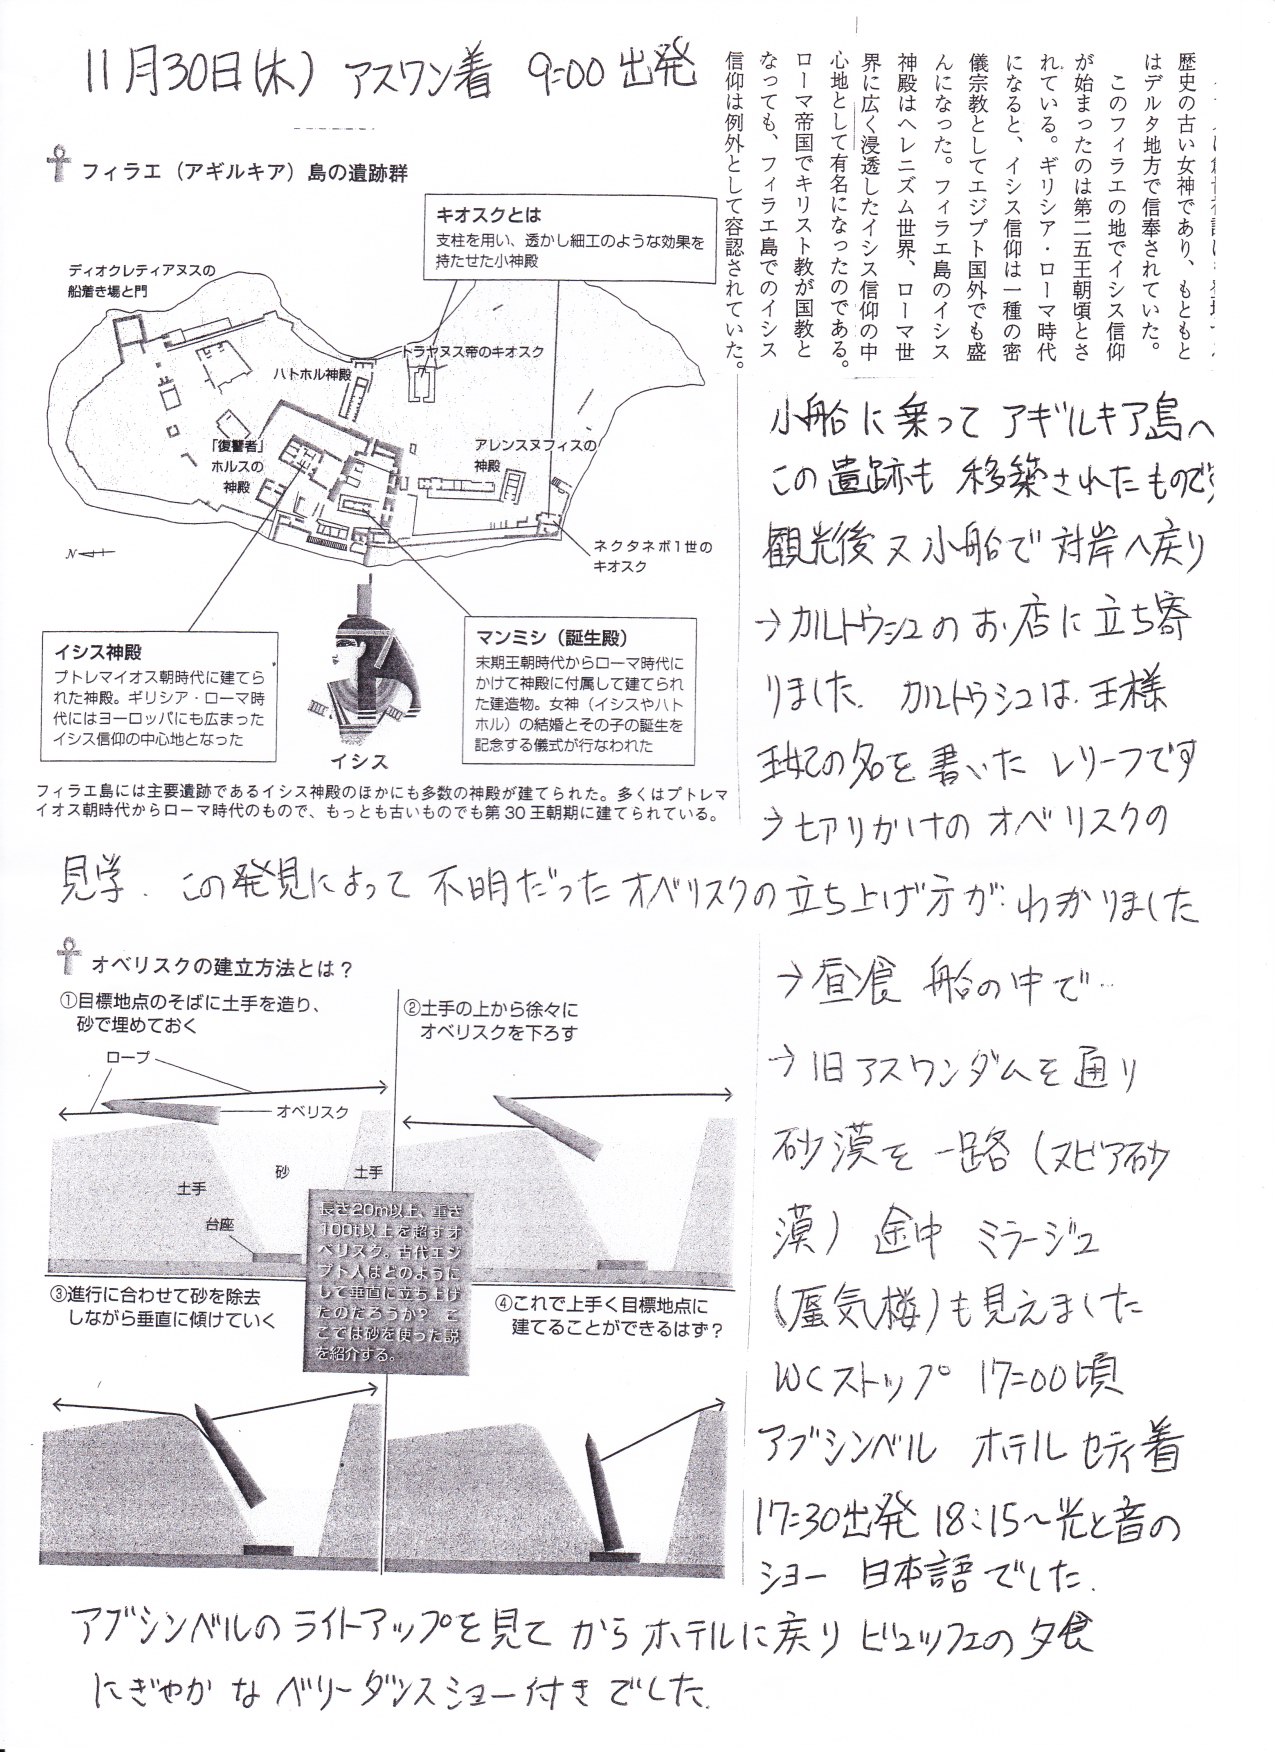 11月30日(木) アスワン着 9:00出発
歴史の古い女神であり、もともと
はデルタ地方で信奉されていた。
このフィラエの地でイシス信仰
が始まったのは第二五王朝頃とさ
れている。ギリシア・ローマ時代
になると、イシス信仰は一種の密
儀宗教としてエジプト国外でも盛
んになった。フィラエ島のイシス
神殿はヘレニズム世界、ローマ世
界に広く浸透したイシス信仰の中
心地として有名になったのである。
ローマ帝国でキリスト教が国教と
なっても、フィラエ島でのイシス
信仰は例外として容認されていた。
フィラエ（アギルキア）島の遺跡群
キオスクとは
支柱を用い、透かし細工のような効果を
持たせた小神殿
ディオクレティアヌスの
船着き場と門
トラヤヌス帝のキオスク
ハトホル神殿
「復讐者」
ホルスの
神殿
アレンスヌフィスの
神殿
N
ネクタネボ1世の
キオスク
イシス神殿
プトレマイオス朝時代に建てら
れた神殿。ギリシア・ローマ時
代にはヨーロッパにも広まった
イシス信仰の中心地となった
イシス
マンミシ（誕生殿）
末期王朝時代からローマ時代に
かけて神殿に付属して建てられ
た建造物。女神（イシスやハト
ホル）の結婚とその子の誕生を
記念する儀式が行なわれた
フィラエ島には主要遺跡であるイシス神殿のほかにも多数の神殿が建てられた。多くはプトレマ
イオス朝時代からローマ時代のもので、もっとも古いものでも第30王朝期に建てられている。
小船に乗って アギルキア島へ
この遺跡も 移築されたもので
観光後又小船で対岸へ戻り
→カルトゥシュのお店に立ち寄
りました. カルトゥシュは.王様
王妃の名を書いた レリーフです
→切りかけのオベリスクの
見学. この発見によって不明だったオベリスクの立ち上げ方がわかりました
→昼食 船の中で
→旧アスワンダムを通り
砂漠を一路（ヌビア砂
漠）途中 ミラージュ
（蜃気楼）も見えました
WCストップ 17:00頃
アブシンベル ホテル セティ着
17:30出発 18:15～光と音の
ショー 日本語でした.
アブシンベルのライトアップを見てからホテルに戻りビュッフェの夕食
にぎやかなベリーダンスショー付きでした.
オベリスクの建立方法とは？
①目標地点のそばに土手を造り、
砂で埋めておく
ロープ
オベリスク
砂
土手
土手
台座
②土手の上から徐々に
オベリスクを下ろす
長さ20m以上、重さ
100t以上を超すオ
ベリスク。古代エジ
プト人はどのように
して垂直に立ち上げ
たのだろうか？ こ
こでは砂を使った説
を紹介する。
③進行に合わせて砂を除去
しながら垂直に傾けていく
④これで上手く目標地点に
建てることができるはず？